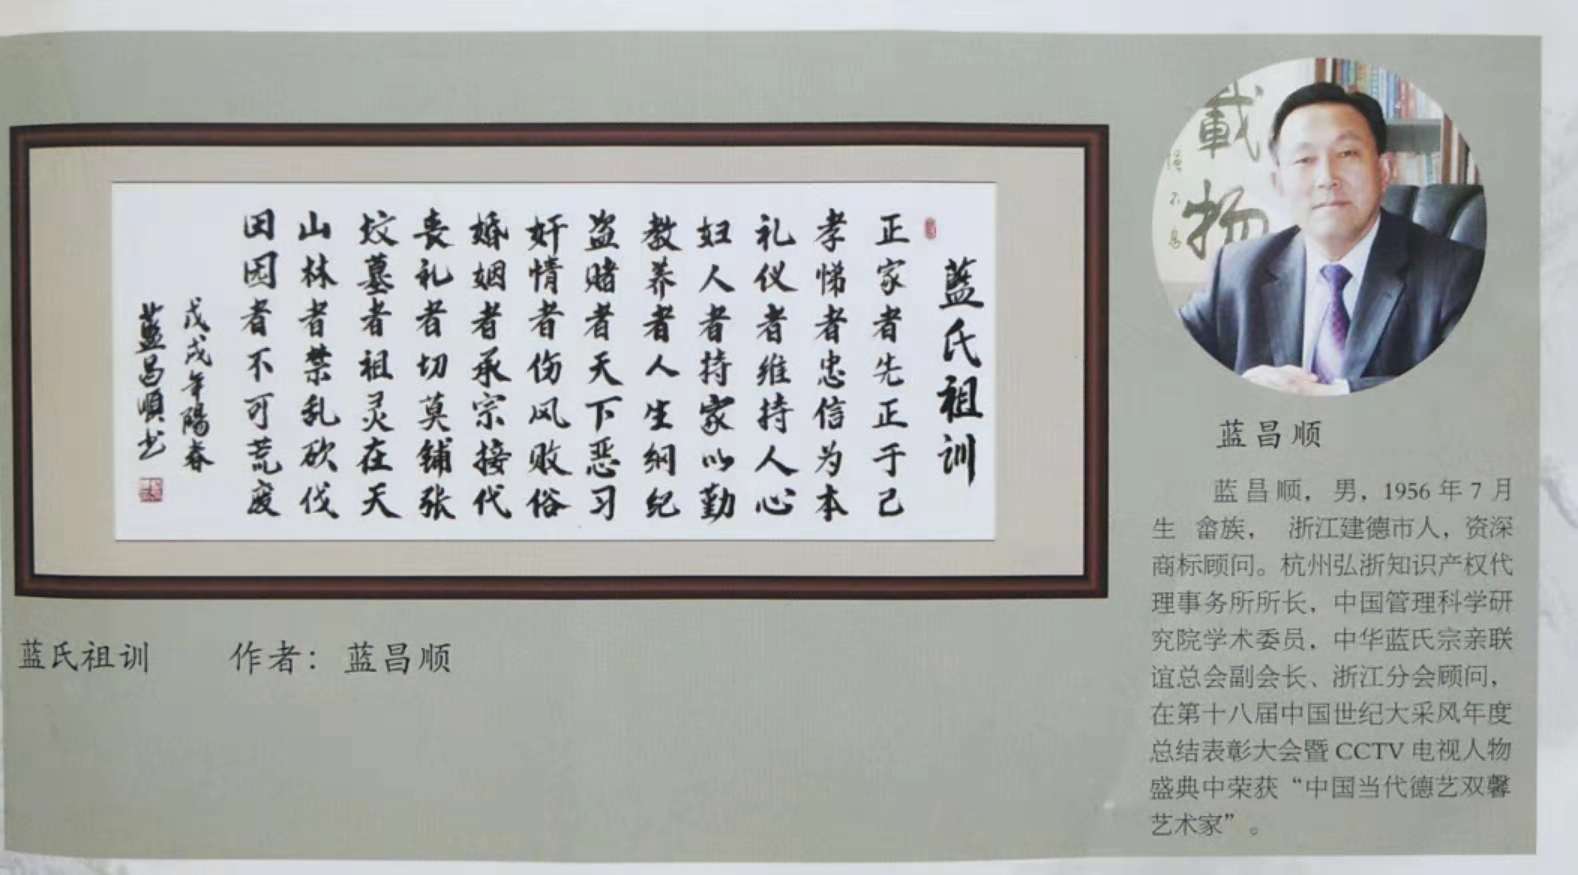 藍氏祖训
正家者先正于己
孝悌者忠信为本
礼仪者维持人心
妇人者持家以勤
教养者人生纲纪
盗赌者天下恶习
奸情者伤风败俗
婚姻者承宗接代
丧礼者切莫铺张
坟墓者祖灵在天
山林者禁乱砍伐
田园者不可荒废
戊戌年陽春
藍昌順书
蓝氏祖训 作者：蓝昌顺
載
物
不
息
蓝昌顺
蓝昌顺，男，1956年7月
生 畲族， 浙江建德市人，资深
商标顾问。杭州弘浙知识产权代
理事务所所长，中国管理科学研
究院学术委员，中华蓝氏宗亲联
谊总会副会长、浙江分会顾问，
在第十八届中国世纪大采风年度
总结表彰大会暨CCTV电视人物
盛典中荣获“中国当代德艺双馨
艺术家”。